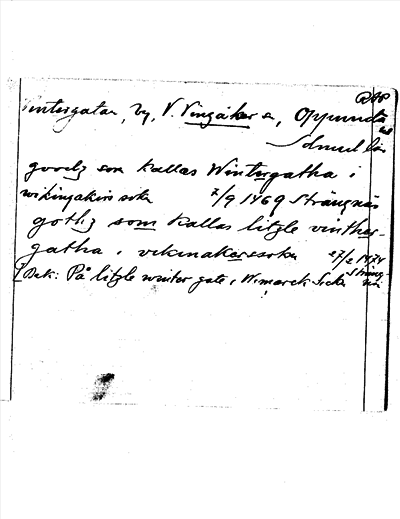 RAP
Vintergatan, by, V. Vingåker sn, Oppunda hd
Södml. län
goodz som kallas Wintergatha i
wikingakirs sokn 7/9 1469 Strängnäs
gotz som kallas litzle vinther-
gatha i vikinakerssokn 27/2 1474
Strängnäs
[Bak: På litzle winter gate i Wimarck Sokn